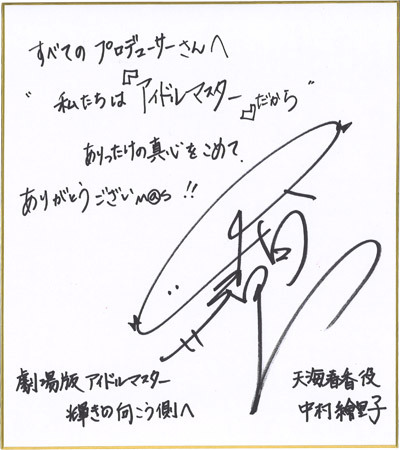 すべてのプロデューサーさんへ
"私たちは『アイドルマスター』だから"
ありったけの真心をこめて、
ありがとうございм@s!!
劇場版アイドルマスター
輝きの向こう側へ
天海春香役
中村繪里子